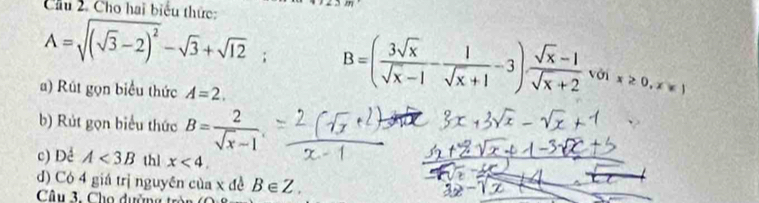 Câu 2. Cho hai biểu thức:
A = √((√3 − 2)²) − √3 + √12 ; B = (3√x/(√x − 1) − 1/(√x + 1) − 3) · (√x − 1)/(√x + 2) với x ≥ 0, x ≠ 1
a) Rút gọn biểu thức A = 2.
b) Rút gọn biểu thức B = 2/(√x − 1). = 2(√x + 2)/(x − 1) 3x + 3√x − √x + 1
c) Để A < 3B thì x < 4.
d) Có 4 giá trị nguyên của x để B ∈ Z.
Câu 3. Cho đường tròn (O